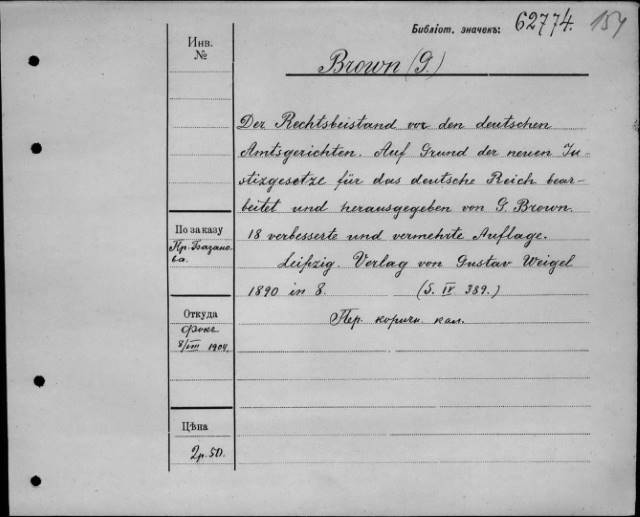 Библіот. значекъ: 62774. 154
Инв.
№
Brown (G.)
Der Rechtsbeistand vor den deutschen
Amtsgerichten. Auf Grund der neuen Ju-
stizgesetze für das deutsche Reich bear-
beitet und herausgegeben von G. Brown.
18 verbesserte und vermehrte Auflage.
Leipzig. Verlag von Gustav Weigel
1890 in 8. (S. IV 389.)
Пер. коричн. кал.
По заказу
Пр. Базано-
ва.
Откуда
Фокъ
8/VIII 1904.
Цѣна
2р.50.